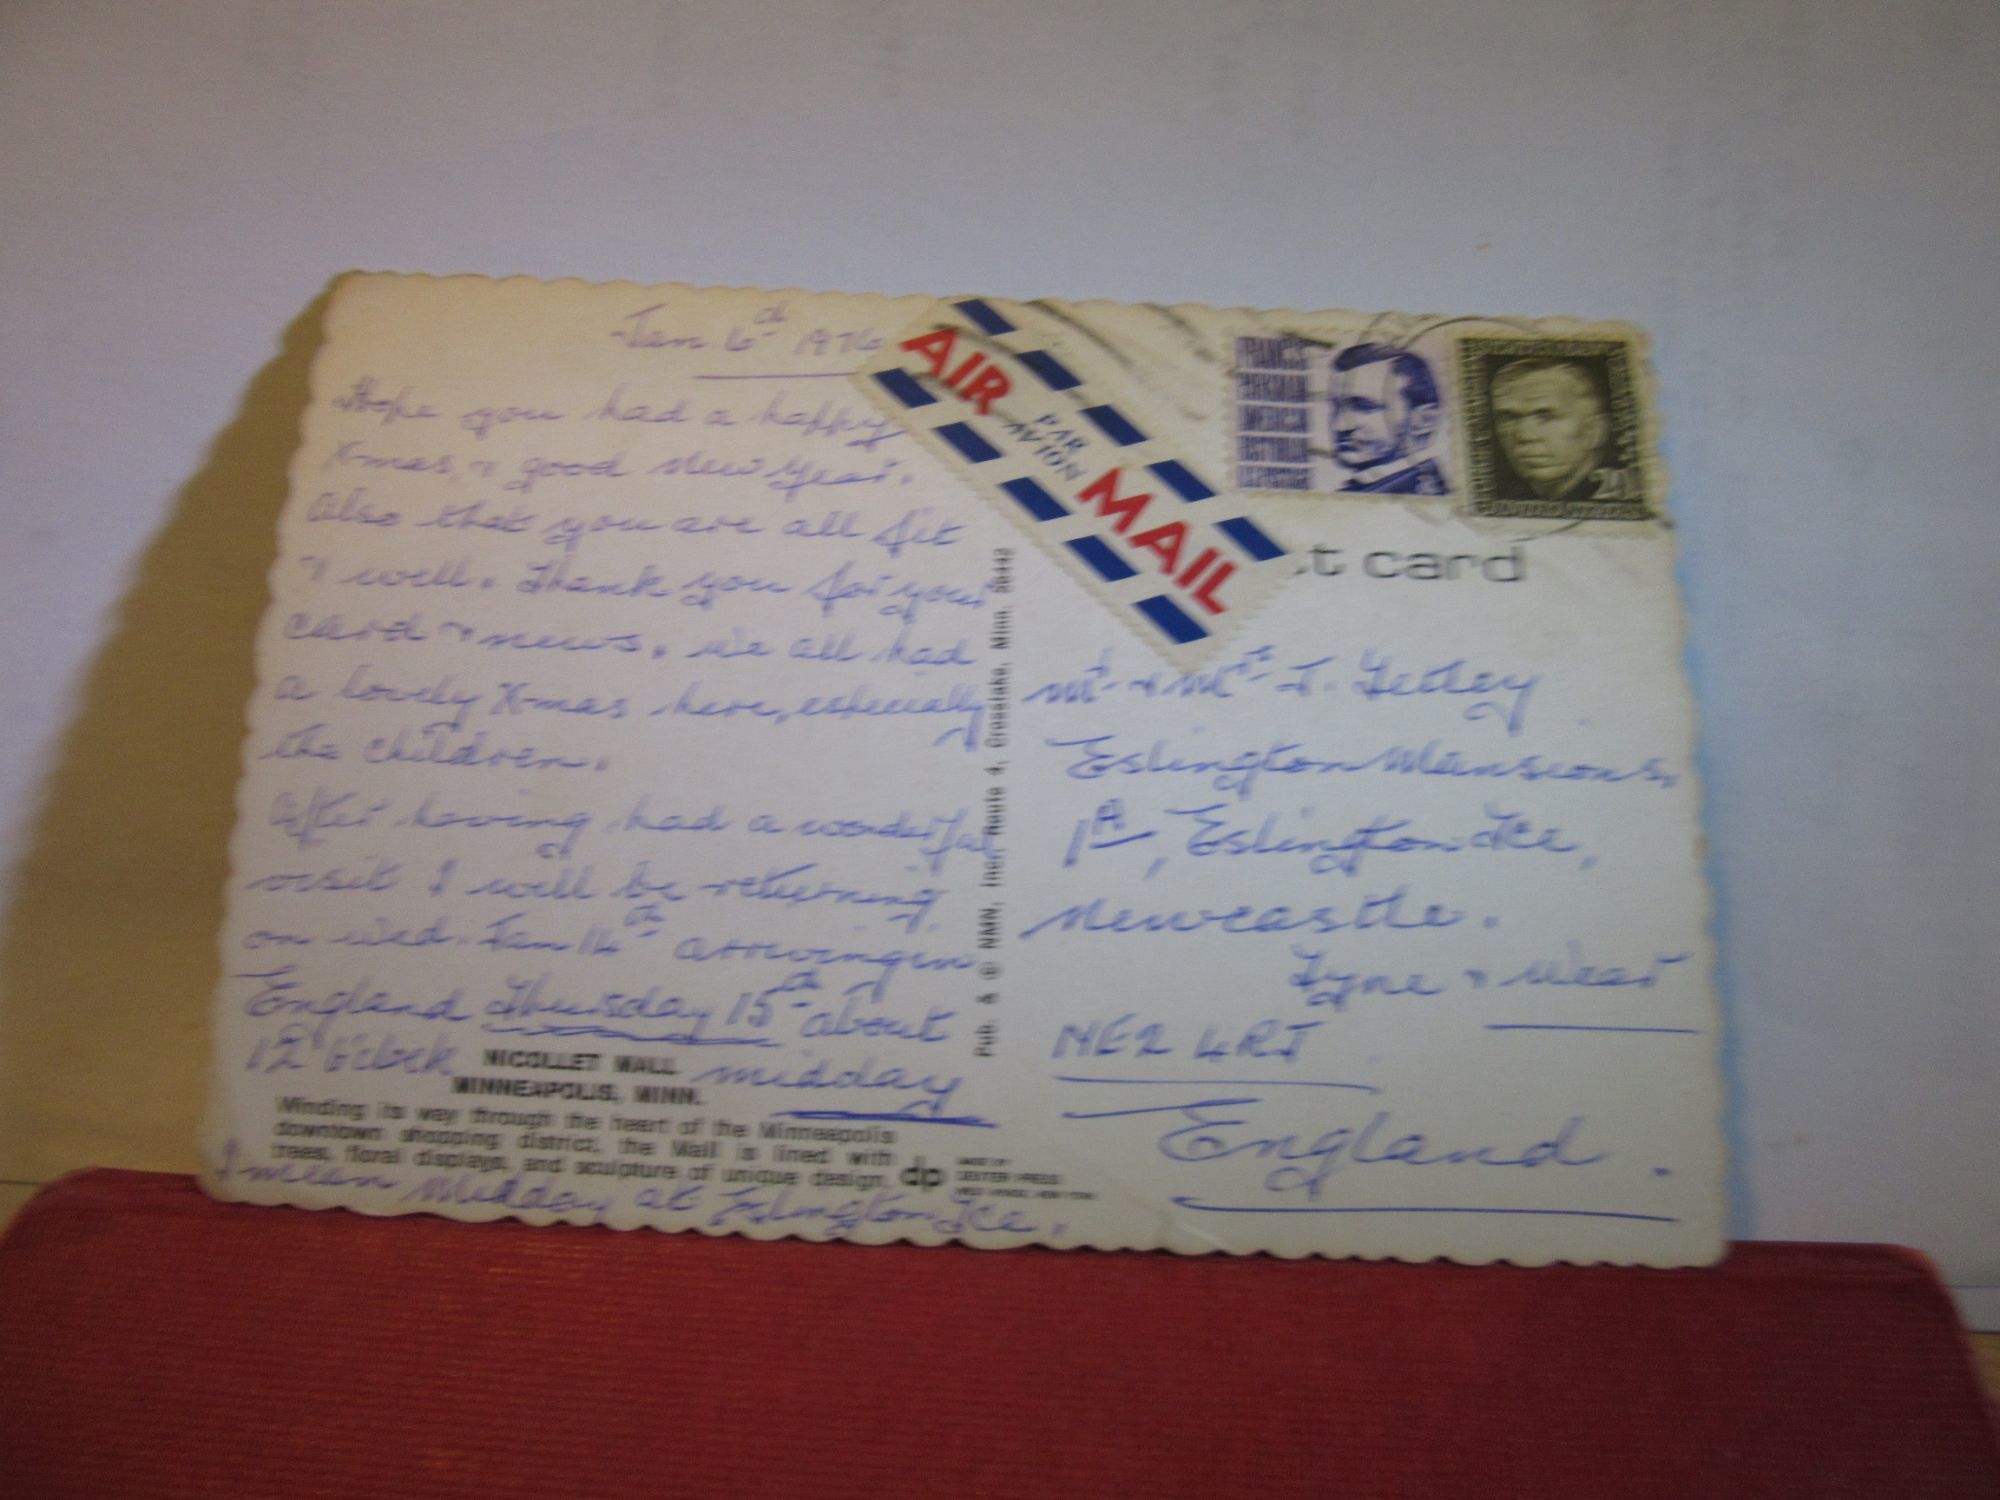 Jan 6th 1976
Hope you had a happy
Xmas, & good New Year.
Also that you are all fit
& well. Thank you for your
card & news. We all had
a lovely Xmas here, especially
the children.
After having had a wonderful
visit I will be returning
on Wed. Jan 14th arriving in
England Thursday 15th about
12 o'clock midday
NICOLLET MALL
MINNEAPOLIS, MINN.
Winding its way through the heart of the Minneapolis
downtown shopping district, the Mall is lined with
trees, floral displays, and sculpture of unique design.
I mean Midday at Eslington Tce.
dp
MADE BY
DEXTER PRESS
WEST NYACK, NEW YORK
Pub. & © NMN, Inc., Route 4, Crosslake, Minn. 56442
AIR MAIL
PAR AVION
FRANCIS
PARKMAN
AMERICA
HISTORIA
UNITED STATES
st card
Mr & Mrs J.
Eslington Mansions,
1A, Eslington Tce,
Newcastle.
Tyne & Wear
NE2 4RJ
England.